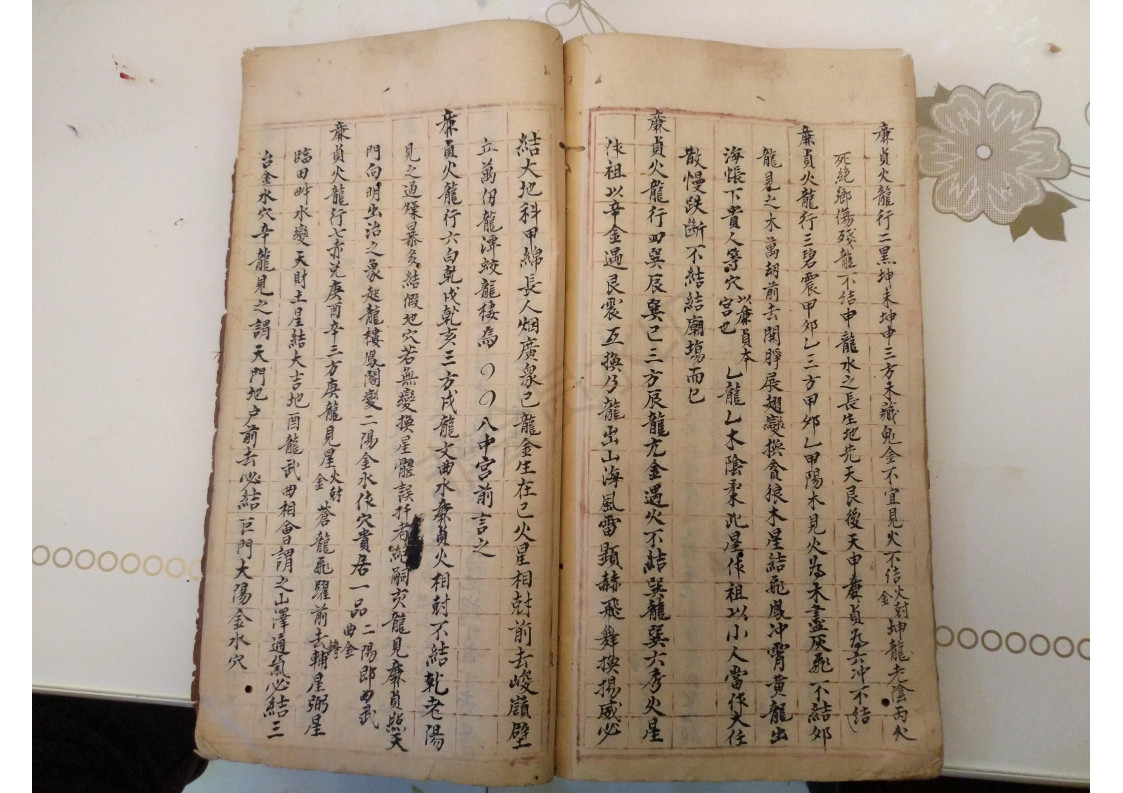 廉貞火龍行二黑坤未坤申三方未藏鬼金不宜見火不結火尅金坤龍老陰丙火
死絕鄉傷殘龍不結申龍水之長生地先天艮後天申廉貞為六冲不結
廉貞火龍行三碧震甲卯乙三方甲卯乙甲陽木見火為木盡灰飛不結卯
龍見之木萬胡前去開脬展翅變換貪狼木星結飛鳳冲霄黄龍出
海悵下貴人等穴以廉貞本宮也乙龍乙木陰柔此星作祖以小人當作大任
散慢跌断不結結廟塲而已
廉貞火龍行四巽辰巽巳三方辰龍亢金遇火不結巽龍巽六秀火星
作祖以辛金遇艮震互換乃龍出山海風雷顕赫飛舞揆揚威必
結大地科甲綿長人烟廣衆巳龍金生在巳火星相尅前去峻嶺壁
立萬仞龍潭蛟龍棲焉八中宮前言之
廉貞火龍行六白乾戌乾亥三方戌龍文曲水廉貞火相尅不結乾老陽
見之過燥暴多結假地穴若無變換星體誤扦者絕嗣亥龍見廉貞照天
門向明出治之象起龍樓鳳閣變二陽金水作穴貴居一品二陽即曲武曲金
廉貞火龍行七赤兑庚酉辛三方庚龍見星火尅金蒼龍飛躍前去輔星弼星轉
臨田畔水變天財土星結大吉地酉龍武曲相會謂之山澤通氣必結三
台金水穴辛龍見之謂天門地户前去必結巨門太陽金水穴